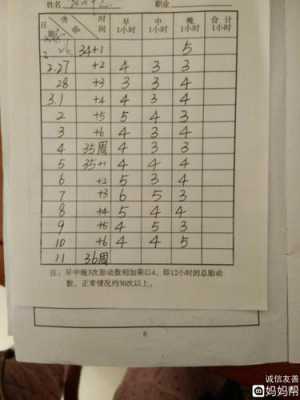 姓名
日期 孕周 时间 早1小时 中1小时 晚1小时 合计1小时
34+1 5
2.27 +2 4 3 3
28 +3 3 3 4
3.1 +4 4 3 4
2 +5 5 4 3
3 +6 4 3 4
4 35周 4 3 3
5 35+1 4 4 4
6 +2 5 3 4
7 +3 6 5 3
8 +4 5 4 4
9 +5 4 5 3
10 +6 4 4 5
11 36周
注：早中晚3次胎动数相加乘以4，即12小时的总胎动
数，正常情况约30次以上。
6
诚信友善
妈妈帮